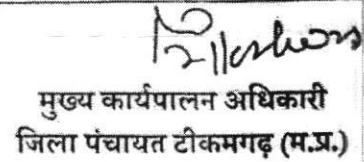 मुख्य कार्यपालन अधिकारी
जिला पंचायत टीकमगढ़ (म.प्र.)